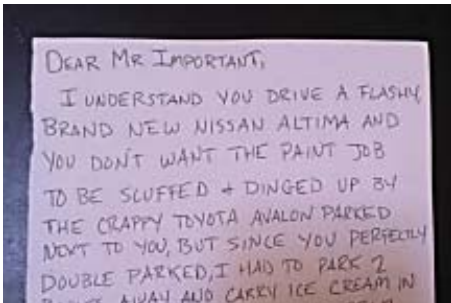 DEAR MR IMPORTANT,
I UNDERSTAND YOU DRIVE A FLASHY
BRAND NEW NISSAN ALTIMA AND
YOU DON'T WANT THE PAINT JOB
TO BE SCUFFED + DINGED UP BY
THE CRAPPY TOYOTA AVALON PARKED
NEXT TO YOU, BUT SINCE YOU PERFECTLY
DOUBLE PARKED, I HAD TO PARK 2
AWAY AND CARRY ICE CREAM IN